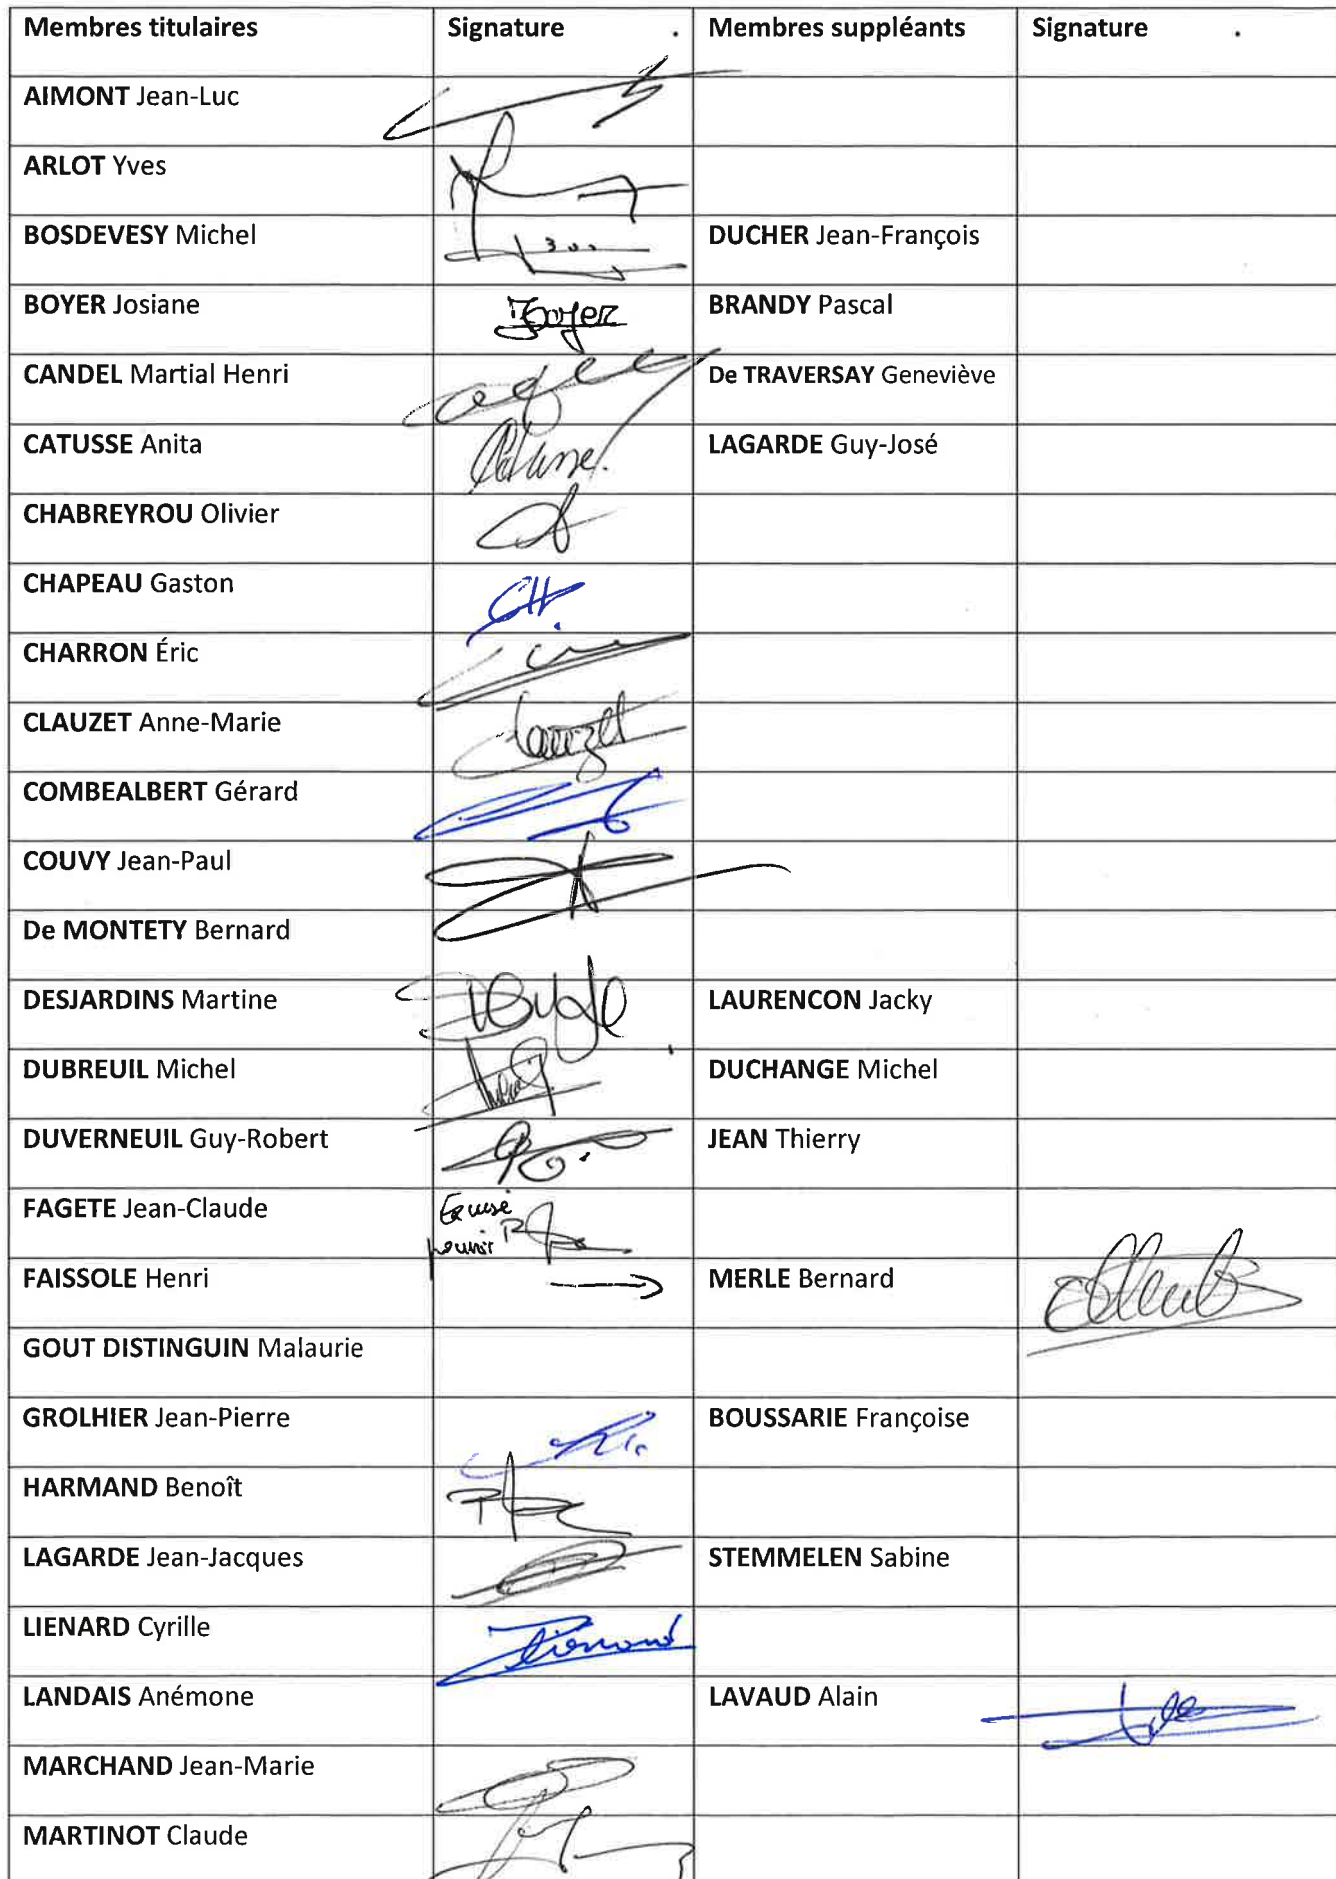 Membres titulaires Signature Membres suppléants Signature
AIMONT Jean-Luc
ARLOT Yves
BOSDEVESY Michel DUCHER Jean-François
BOYER Josiane Boyer BRANDY Pascal
CANDEL Martial Henri De TRAVERSAY Geneviève
CATUSSE Anita LAGARDE Guy-José
CHABREYROU Olivier
CHAPEAU Gaston CH
CHARRON Éric
CLAUZET Anne-Marie Clauzet
COMBEALBERT Gérard
COUVY Jean-Paul
De MONTETY Bernard
DESJARDINS Martine LAURENCON Jacky
DUBREUIL Michel DUCHANGE Michel
DUVERNEUIL Guy-Robert JEAN Thierry
FAGETE Jean-Claude
FAISSOLE Henri → MERLE Bernard
GOUT DISTINGUIN Malaurie
GROLHIER Jean-Pierre BOUSSARIE Françoise
HARMAND Benoît
LAGARDE Jean-Jacques STEMMELEN Sabine
LIENARD Cyrille Lienard
LANDAIS Anémone LAVAUD Alain
MARCHAND Jean-Marie
MARTINOT Claude